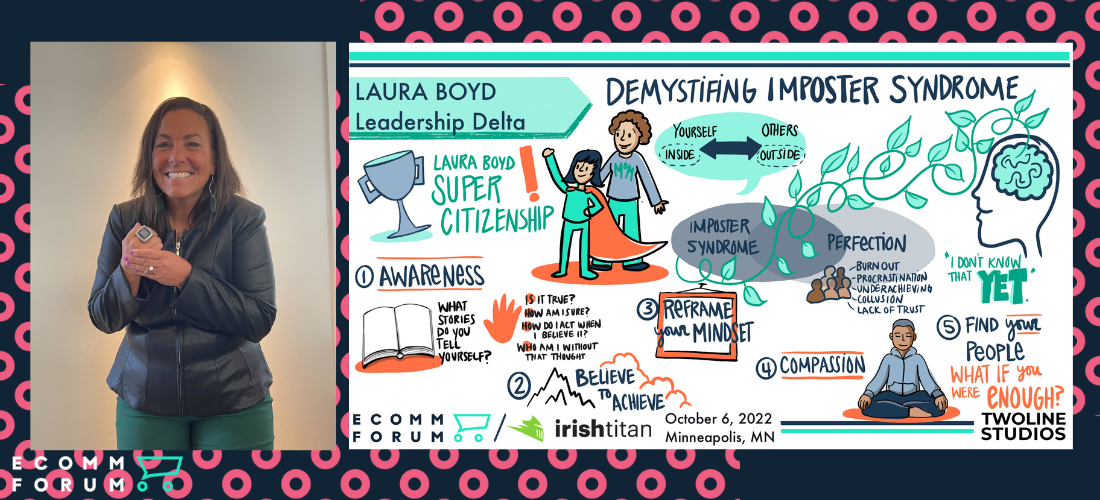 LAURA BOYD
Leadership Delta
DEMYSTIFING IMPOSTER SYNDROME
LAURA BOYD
SUPER
CITIZENSHIP
MOM
YOURSELF
INSIDE
OTHERS
OUTSIDE
IMPOSTER
SYNDROME
PERFECTION
BURN OUT
PROCRASTINATION
UNDERACHIEVING
COLLUSION
LACK OF TRUST
"I DON'T KNOW
THAT YET"
1 AWARENESS
WHAT
STORIES
DO YOU
TELL
YOURSELF?
IS IT TRUE?
HOW AM I SURE?
HOW DO I ACT WHEN
I BELIEVE IT?
WHO AM I WITHOUT
THAT THOUGHT
2 BELIEVE
TO ACHIEVE
3 REFRAME
your MINDSET
4 COMPASSION
5 FIND your
PEOPLE
WHAT IF you
WERE ENOUGH?
ECOMM
FORUM
irishtitan
October 6, 2022
Minneapolis, MN
TWOLINE
STUDIOS
ECOMM
FORUM